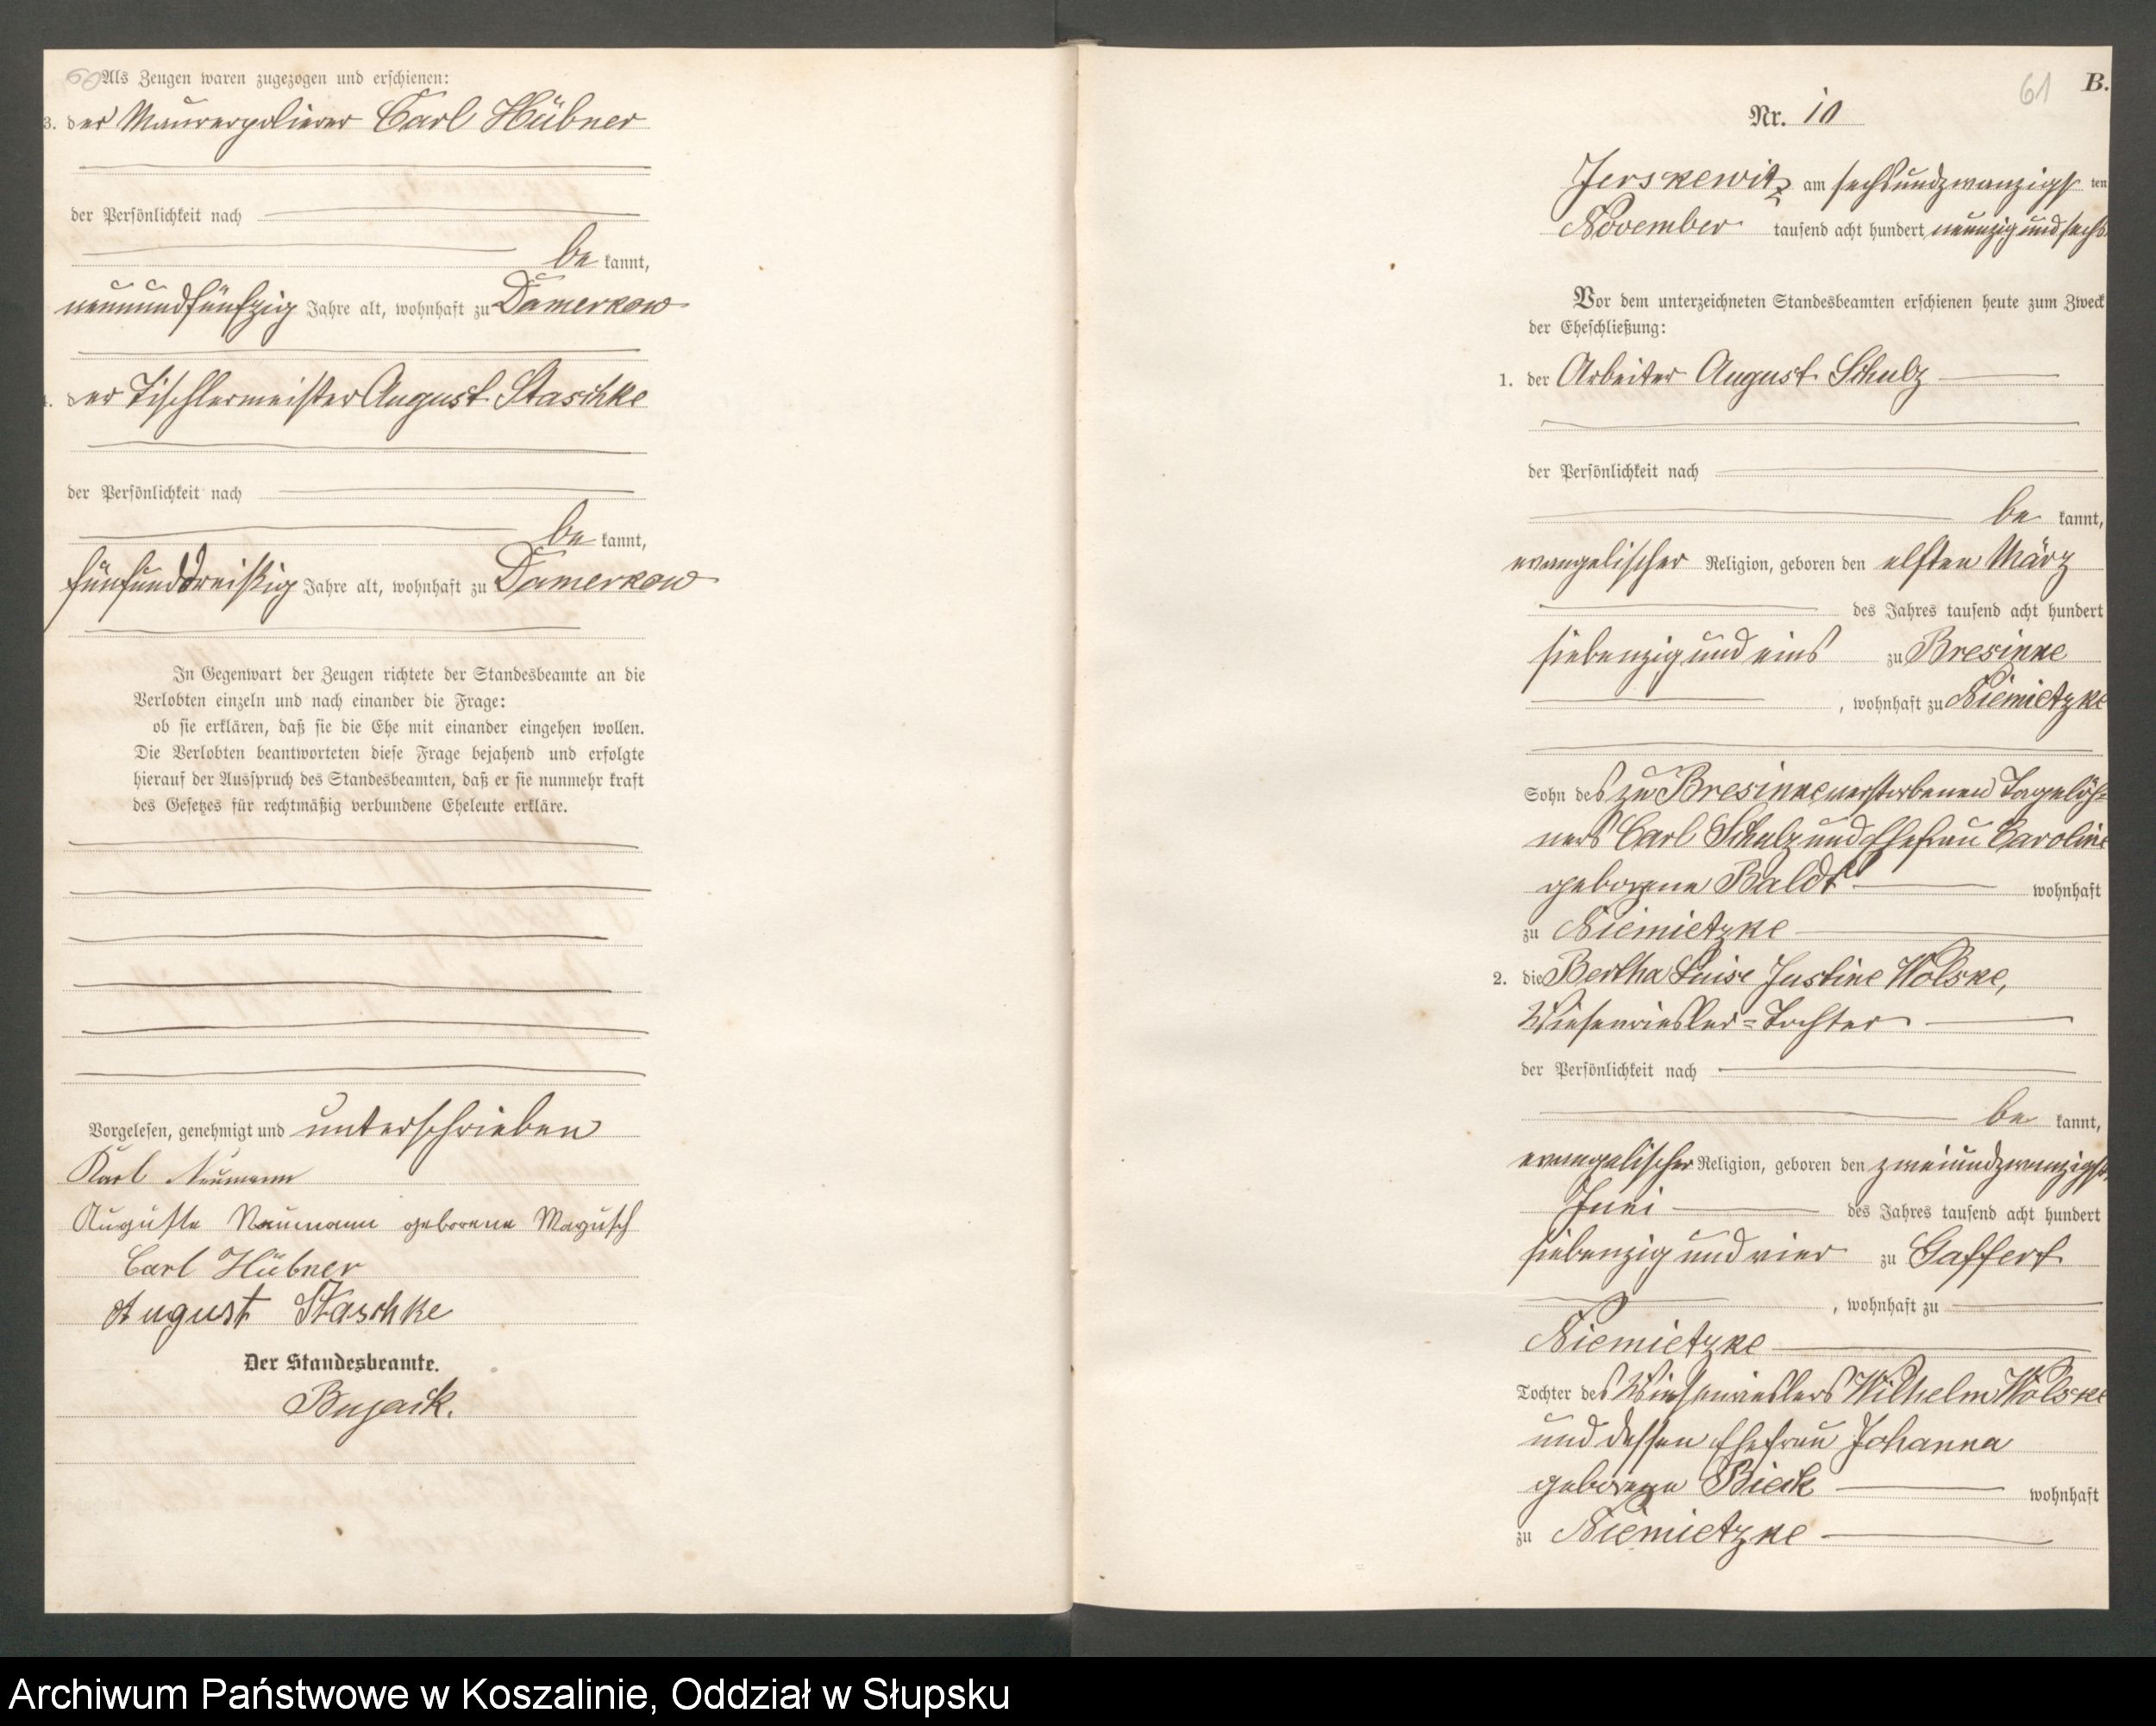 60 Als Zeugen waren zugezogen und erschienen:
3. der Maurerpolierer Carl Hübner
der Persönlichkeit nach
be kannt,
neunundfünfzig Jahre alt, wohnhaft zu Damerkow
der Tischlermeister August Staschke
der Persönlichkeit nach
be kannt,
fünfunddreißig Jahre alt, wohnhaft zu Damerkow
In Gegenwart der Zeugen richtete der Standesbeamte an die
Verlobten einzeln und nach einander die Frage:
ob sie erklären, daß sie die Ehe mit einander eingehen wollen.
Die Verlobten beantworteten diese Frage bejahend und erfolgte
hierauf der Ausspruch des Standesbeamten, daß er sie nunmehr kraft
des Gesetzes für rechtmäßig verbundene Eheleute erkläre.
Vorgelesen, genehmigt und unterschrieben
Karl Neumann
Auguste Neumann geborene Magusch
Carl Hübner
August Staschke
Der Standesbeamte.
Bujack.
61 B.
Nr. 10
Jerskewitz am sechsundzwanzigst ten
November tausend acht hundert neunzig und sechs
Vor dem unterzeichneten Standesbeamten erschienen heute zum Zweck
der Eheschließung:
1. der Arbeiter August Schulz
der Persönlichkeit nach
be kannt,
evangelischer Religion, geboren den elften März
des Jahres tausend acht hundert
siebenzig und eins zu Bresinke
, wohnhaft zu Niemietzke
Sohn des zu Bresinke verstorbenen Tagelöh=
ners Carl Schulz und Ehefrau Caroline
geborene Baldt wohnhaft
zu Niemietzke
2. die Bertha Luise Justine Wolske,
Wiesenriesler=Tochter
der Persönlichkeit nach
be kannt,
evangelischer Religion, geboren den zweiundzwanzigst
Juni des Jahres tausend acht hundert
siebenzig und vier zu Gaffert
, wohnhaft zu
Niemietzke
Tochter des Wiesenrieslers Wilhelm Wolske
und dessen Ehefrau Johanna
geborene Bieck wohnhaft
zu Niemietzke
Archiwum Państwowe w Koszalinie, Oddział w Słupsku